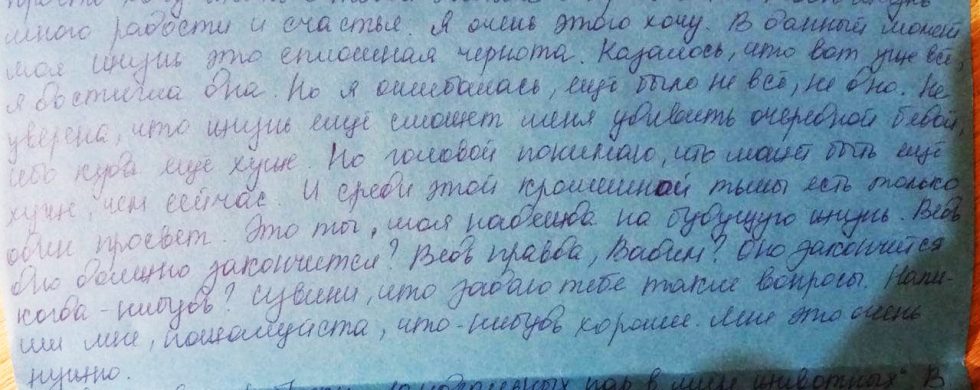 много радости и счастья. Я очень этого хочу. В данный момент
моя жизнь это сплошная чернота. Казалось, что вот уже всё,
я достигла дна. Но я ошибалась, ещё было не всё, не дно. Не
уверена, что жизнь ещё сможет меня удивить очередной бедой,
ибо куда ещё хуже. Но головой понимаю, что может быть ещё
хуже, чем сейчас. И среди этой крошешной тьмы есть только
один просвет. Это ты, моя надежда на будущую жизнь. Ведь
оно должно закончится? Ведь правда, Вадим? Оно закончится
когда-нибудь? Извини, что задаю тебе такие вопросы. Напи-
ши мне, пожалуйста, что-нибудь хорошее. Мне это очень
нужно.